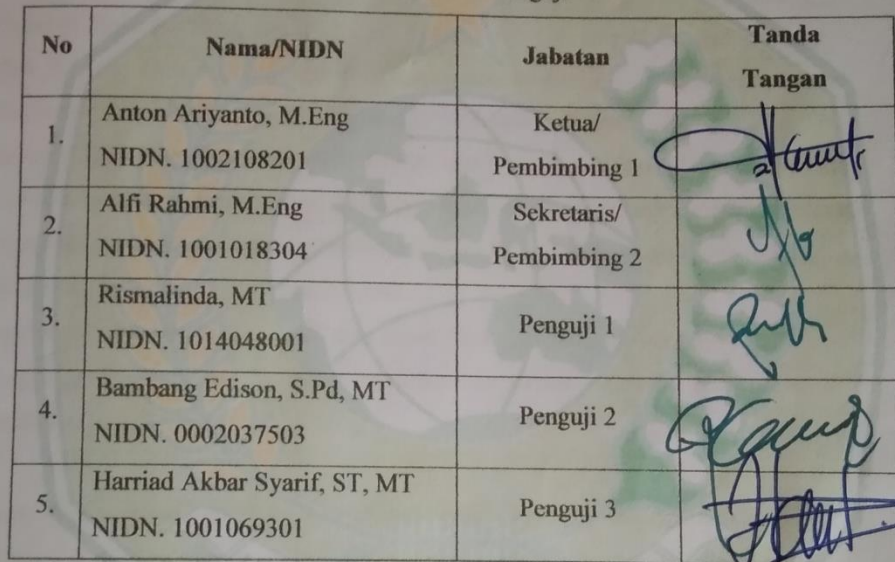 No
Nama/NIDN
Jabatan
Tanda
Tangan
1.
Anton Ariyanto, M.Eng
NIDN. 1002108201
Ketua/
Pembimbing 1
2.
Alfi Rahmi, M.Eng
NIDN. 1001018304
Sekretaris/
Pembimbing 2
3.
Rismalinda, MT
NIDN. 1014048001
Penguji 1
4.
Bambang Edison, S.Pd, MT
NIDN. 0002037503
Penguji 2
5.
Harriad Akbar Syarif, ST, MT
NIDN. 1001069301
Penguji 3